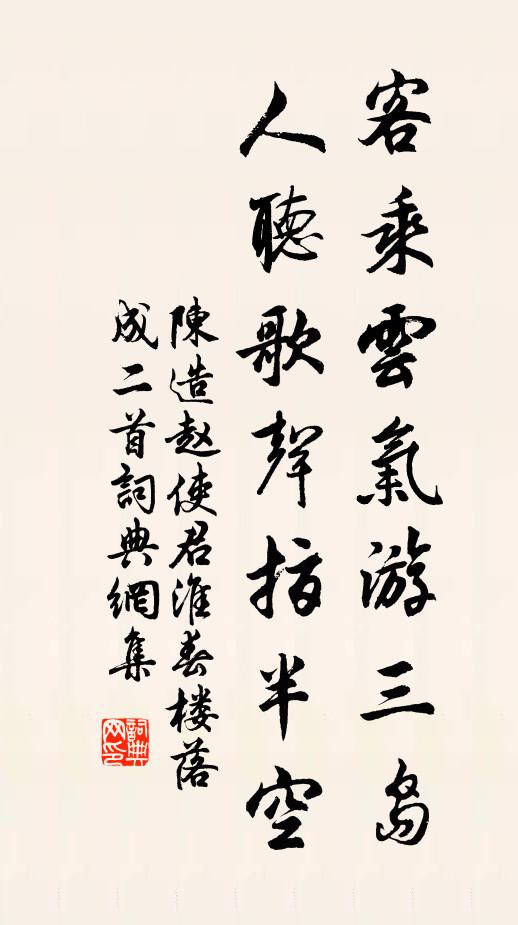 客乘雲氣游三島
人聽歌聲指半空
陳造赵使君淮春楼落
成二首詞典網集
詞典網印